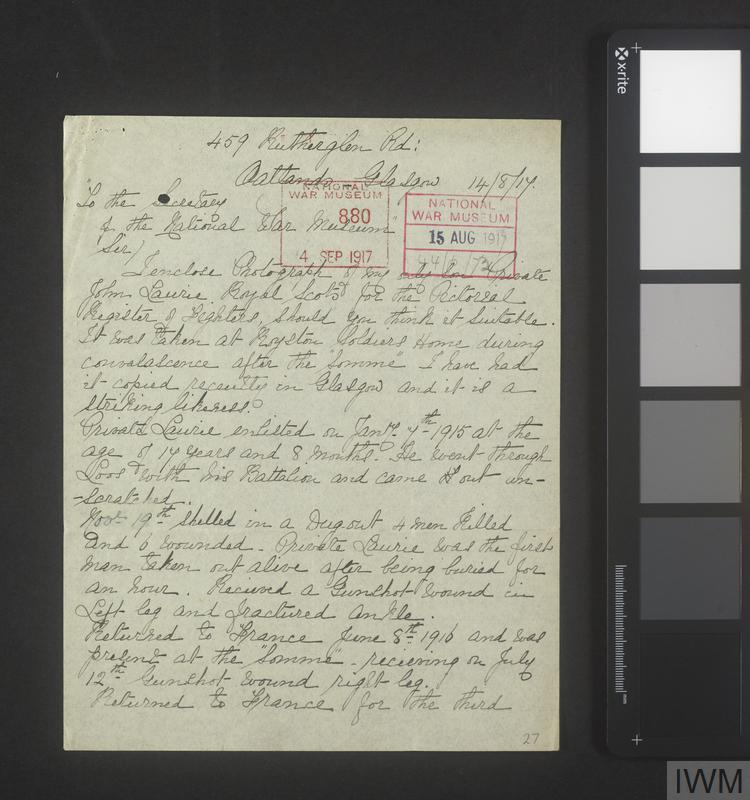 459 Rutherglen Rd:
Oatlands Glasgow 14/8/17.
"To the Secretary
of the National War Museum"
Sir,
I enclose Photograph of my only son Private
John Laurie. Royal Scots for the Pictorial
Register of Fighters, should you think it suitable.
It was taken at Royston Soldiers Home during
convalascence after the "Somme" I have had
it copied recently in Glasgow and it is a
striking likeness.
Private Laurie enlisted on Jany. 4th 1915 at the
age of 14 years and 8 months. He went through
Loos with his Battalion and came out un-
-scratched.
Nov 19th shelled in a Dugout 4 men Killed
and 6 wounded - Private Laurie was the first
man taken out alive after being buried for
an hour. Recieved a Gunshot wound in
Left leg and fractured Ankle.
Returned to France June 8th 1916 and was
present at the "Somme" - recieving on July
12th Gunshot wound right leg.
Returned to France for the third
27
NATIONAL
WAR MUSEUM
880
4 SEP 1917
NATIONAL
WAR MUSEUM
15 AUG 1917
x-rite
mm
IWM